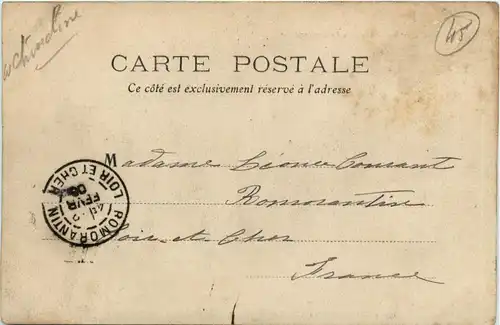 45
CARTE POSTALE
Ce côté est exclusivement réservé à l'adresse
Madame Conant
Romorantin
Loir-et-Cher
France
ROMORANTIN
LOIR ET CHER
FEVR